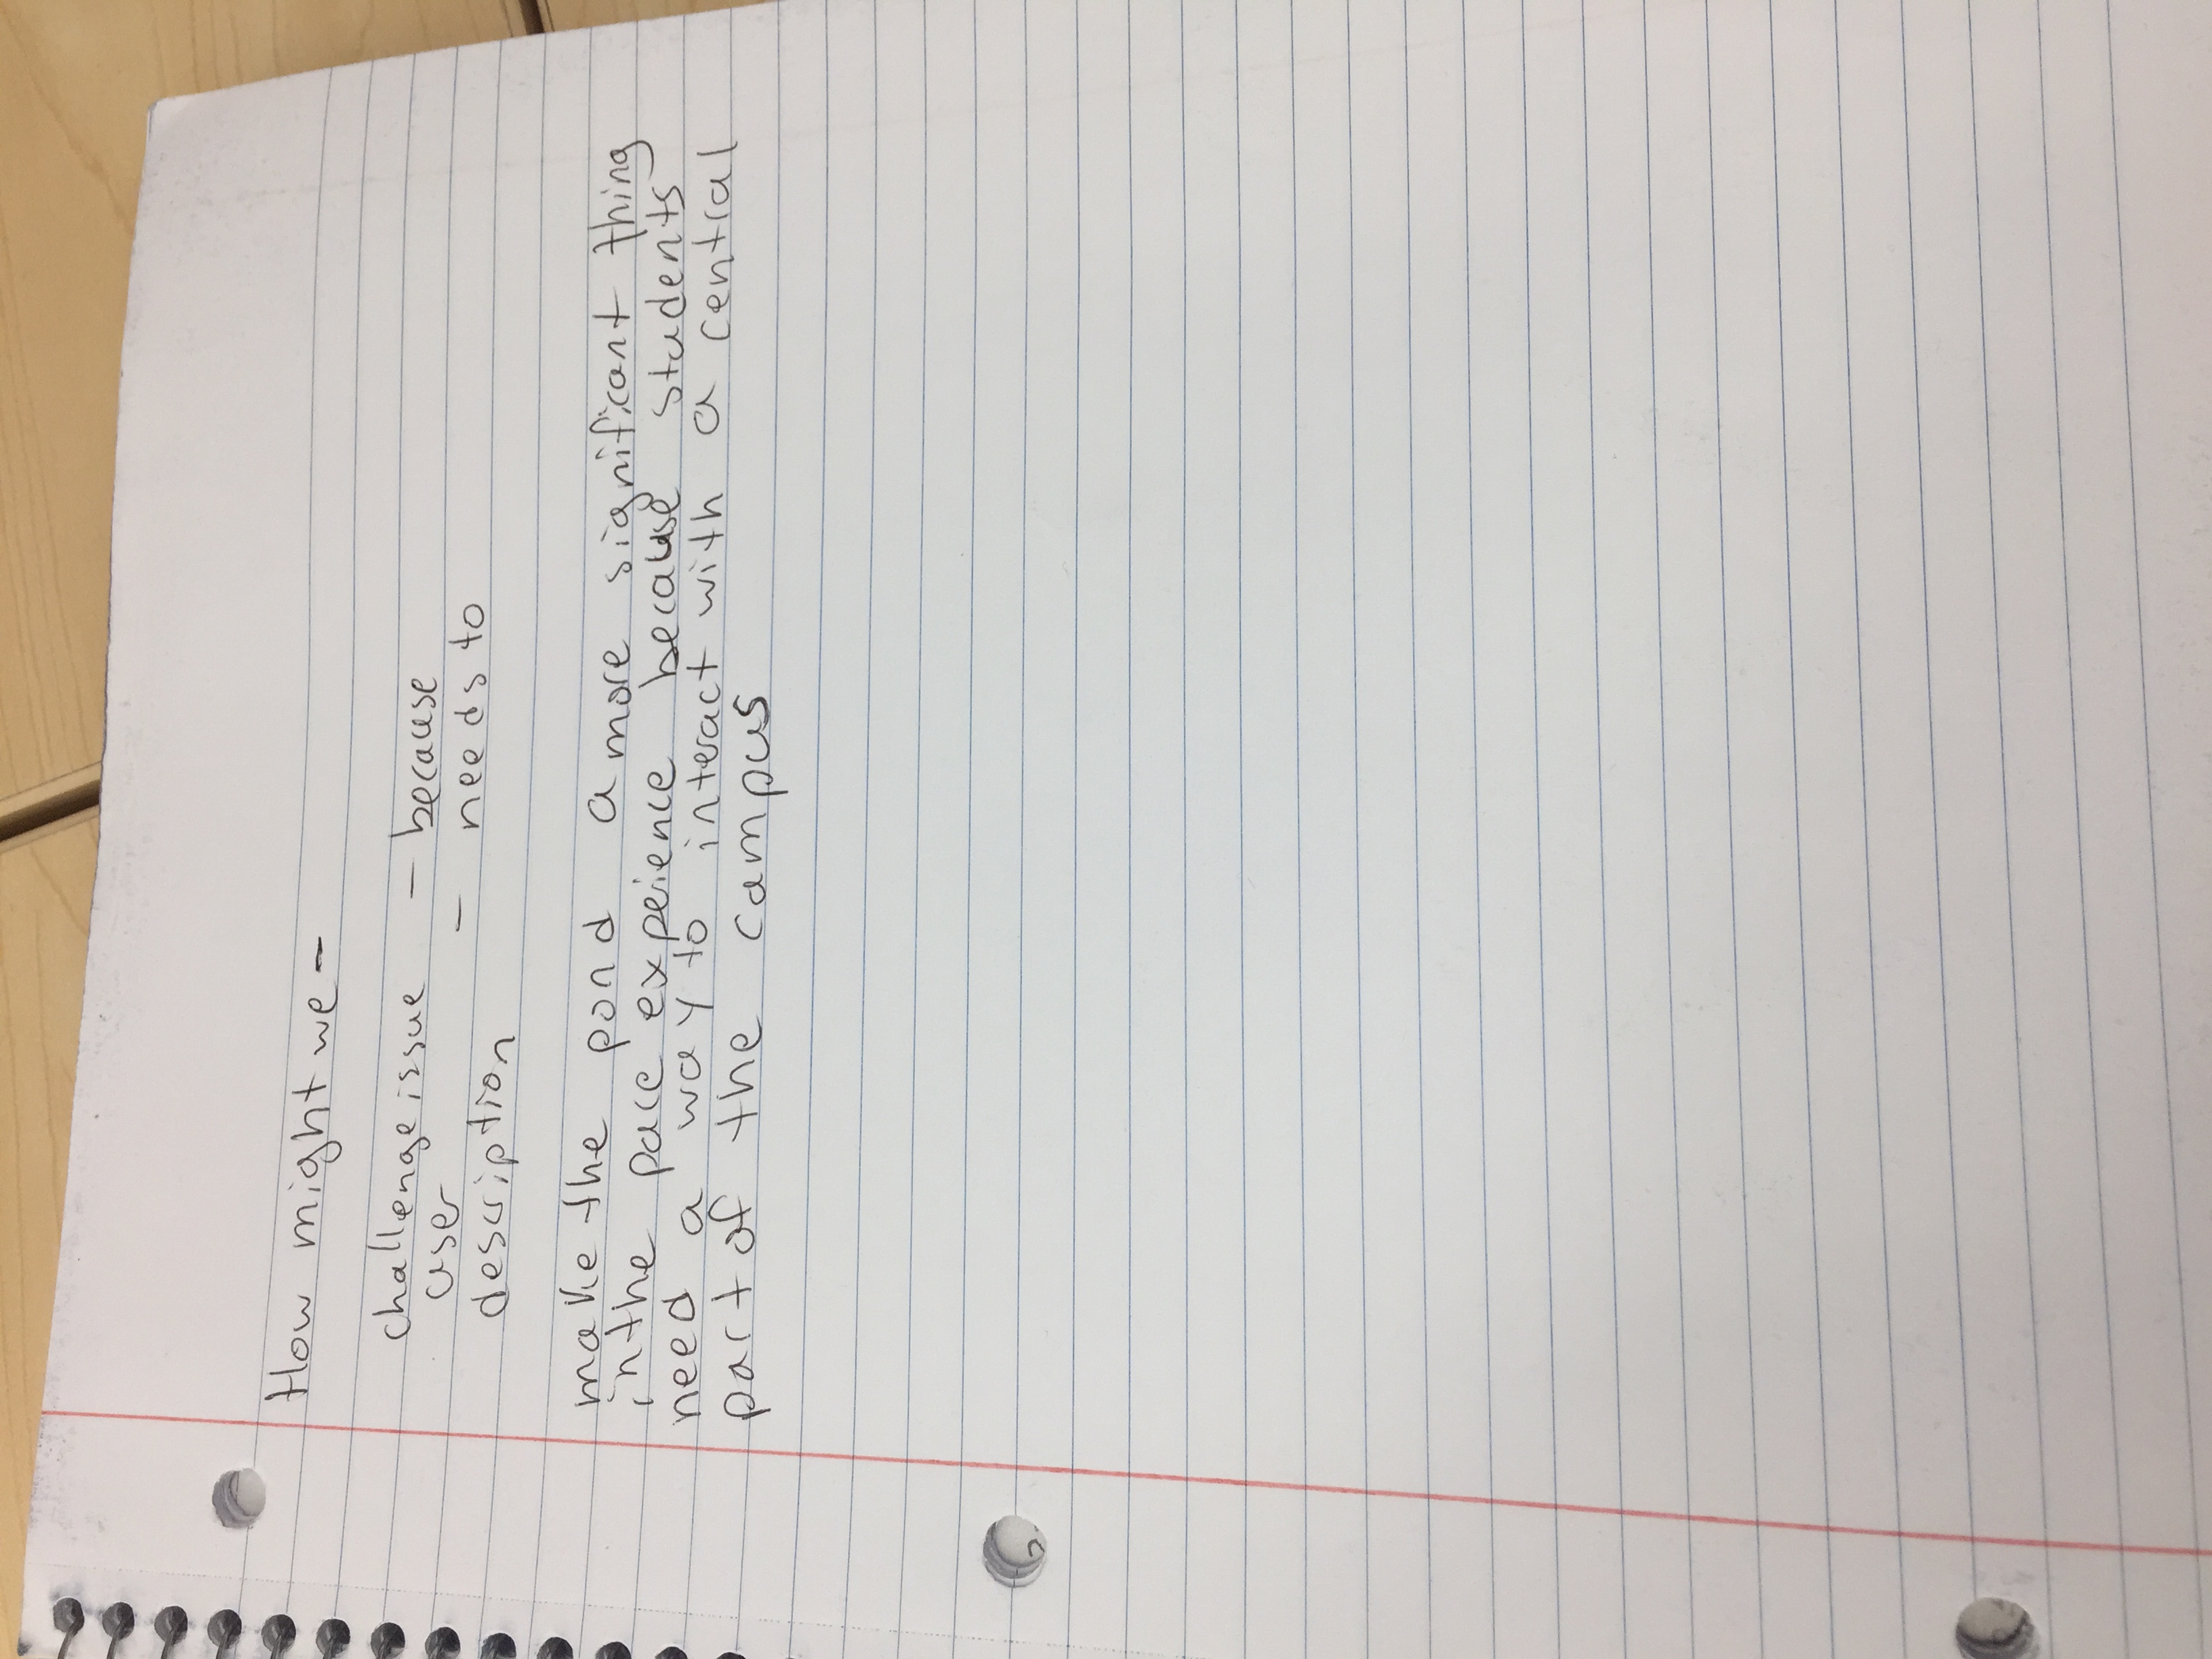 How might we -
challenge issue - because
user - needs to
description
make the pond a more significant thing
in the pace expeience because students
need a way to interact with a central
part of the campus